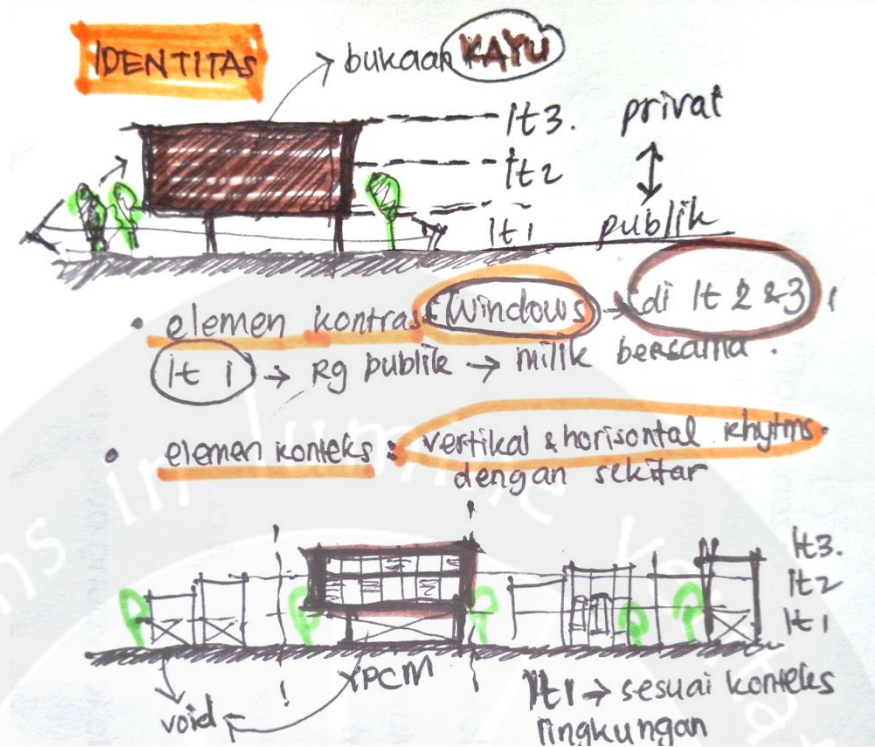 IDENTITAS
bukaan KAYU
lt 3. privat
lt 2
lt 1 publik
• elemen kontras : Windows → di lt 2 & 3
lt 1 → Rg publik → milik bersama.
• elemen konteks : vertikal & horisontal rhytms
dengan sekitar
lt 3.
lt 2
lt 1
YPCM
void
lt 1 → sesuai konteks
lingkungan
in lumine verita